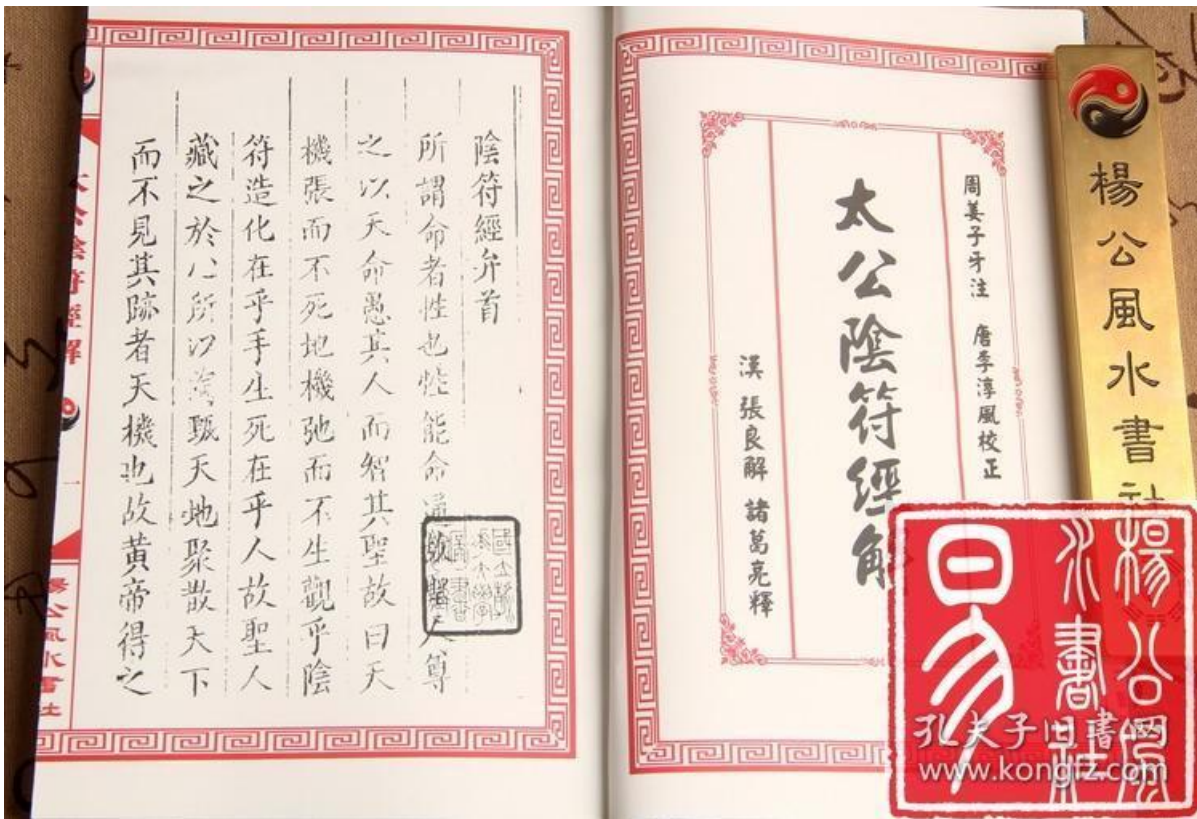 楊公風水書社
周姜子牙注 唐李淳風校正
太公陰符經解
漢 張良解 諸葛亮釋
陰符經弁首
所謂命者性也性能命通故聖人尊
之以天命愚其人而智其聖故曰天
機張而不死地機弛而不生觀乎陰
符造化在乎手生死在乎人故聖人
藏之於心所以陶甄天地聚散天下
而不見其跡者天機也故黃帝得之
太公陰符經解
一
楊公風水書社
楊公風
水書社
易
孔夫子旧書网
www.kongfz.com